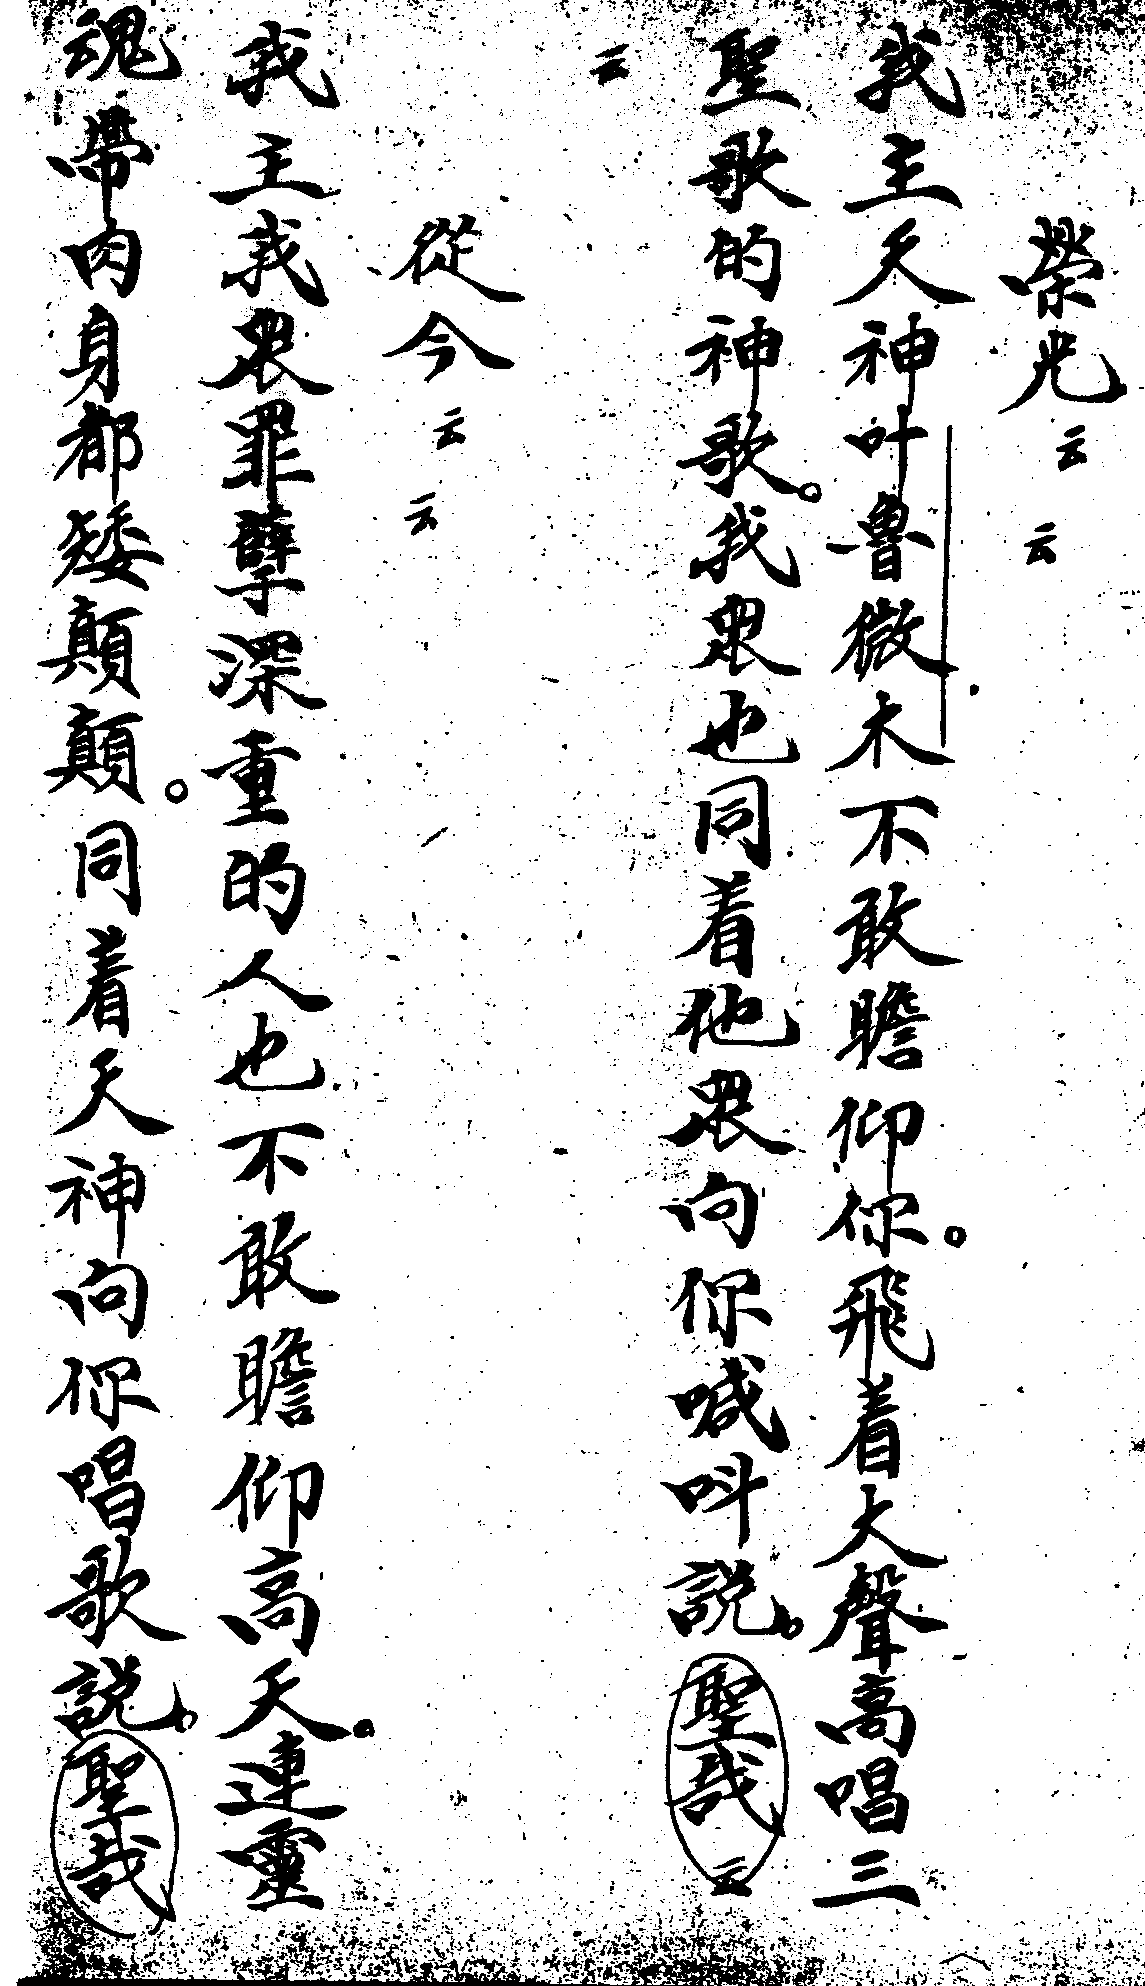 榮光云云
我主天神叶魯微木不敢瞻仰你。飛着大聲高唱三
聖歌的神歌。我眾也同着他眾向你喊叫說。聖哉云
云
從今云云
我主我眾罪孽深重的人也不敢瞻仰高天。連靈
魂帶肉身都矮顛顛。同着天神向你唱歌說。聖哉